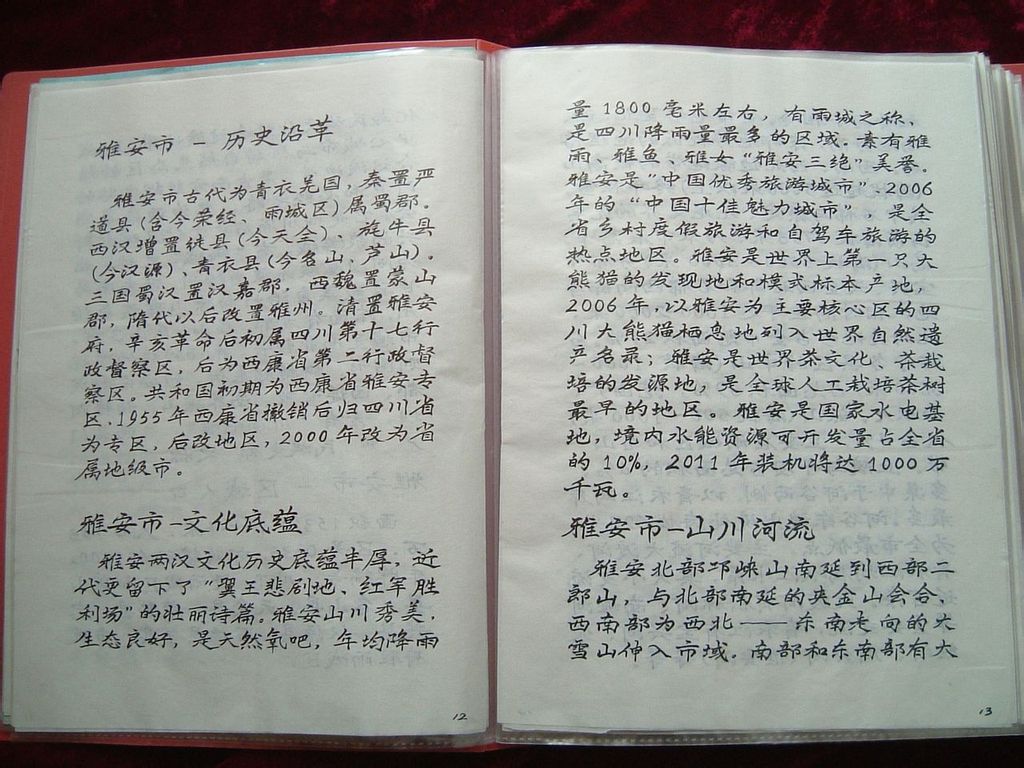 雅安市 - 历史沿革
雅安市古代为青衣羌国，秦置严
道县(含今荣经、雨城区)属蜀郡。
西汉增置徙县(今天全)、旄牛县
(今汉源)、青衣县(今名山、芦山)。
三国蜀汉置汉嘉郡. 西魏置蒙山
郡，隋代以后改置雅州。清置雅安
府，辛亥革命后初属四川第十七行
政督察区，后为西康省第二行政督
察区。共和国初期为西康省雅安专
区.1955年西康省撤销后归四川省
为专区，后改地区，2000年改为省
属地级市。
雅安市-文化底蕴
雅安两汉文化历史底蕴丰厚，近
代更留下了“翼王悲剧地、红军胜
利场”的壮丽诗篇。雅安山川秀美.
生态良好，是天然氧吧，年均降雨
12
量1800毫米左右，有雨城之称、
是四川降雨量最多的区域。素有雅
雨、雅鱼、雅女“雅安三绝”美誉。
雅安是“中国优秀旅游城市”.2006
年的“中国十佳魅力城市”，是全
省乡村度假旅游和自驾车旅游的
热点地区。雅安是世界上第一只大
熊猫的发现地和模式标本产地，
2006年，以雅安为主要核心区的四
川大熊猫栖息地列入世界自然遗
产名录；雅安是世界茶文化、茶栽
培的发源地，是全球人工栽培茶树
最早的地区。雅安是国家水电基
地，境内水能资源可开发量占全省
的10%，2011年装机将达1000万
千瓦。
雅安市-山川河流
雅安北部邛崃山南延到西部二
郎山，与北部南延的夹金山会合.
西南部为西北——东南走向的大
雪山伸入市域. 南部和东南部有大
13